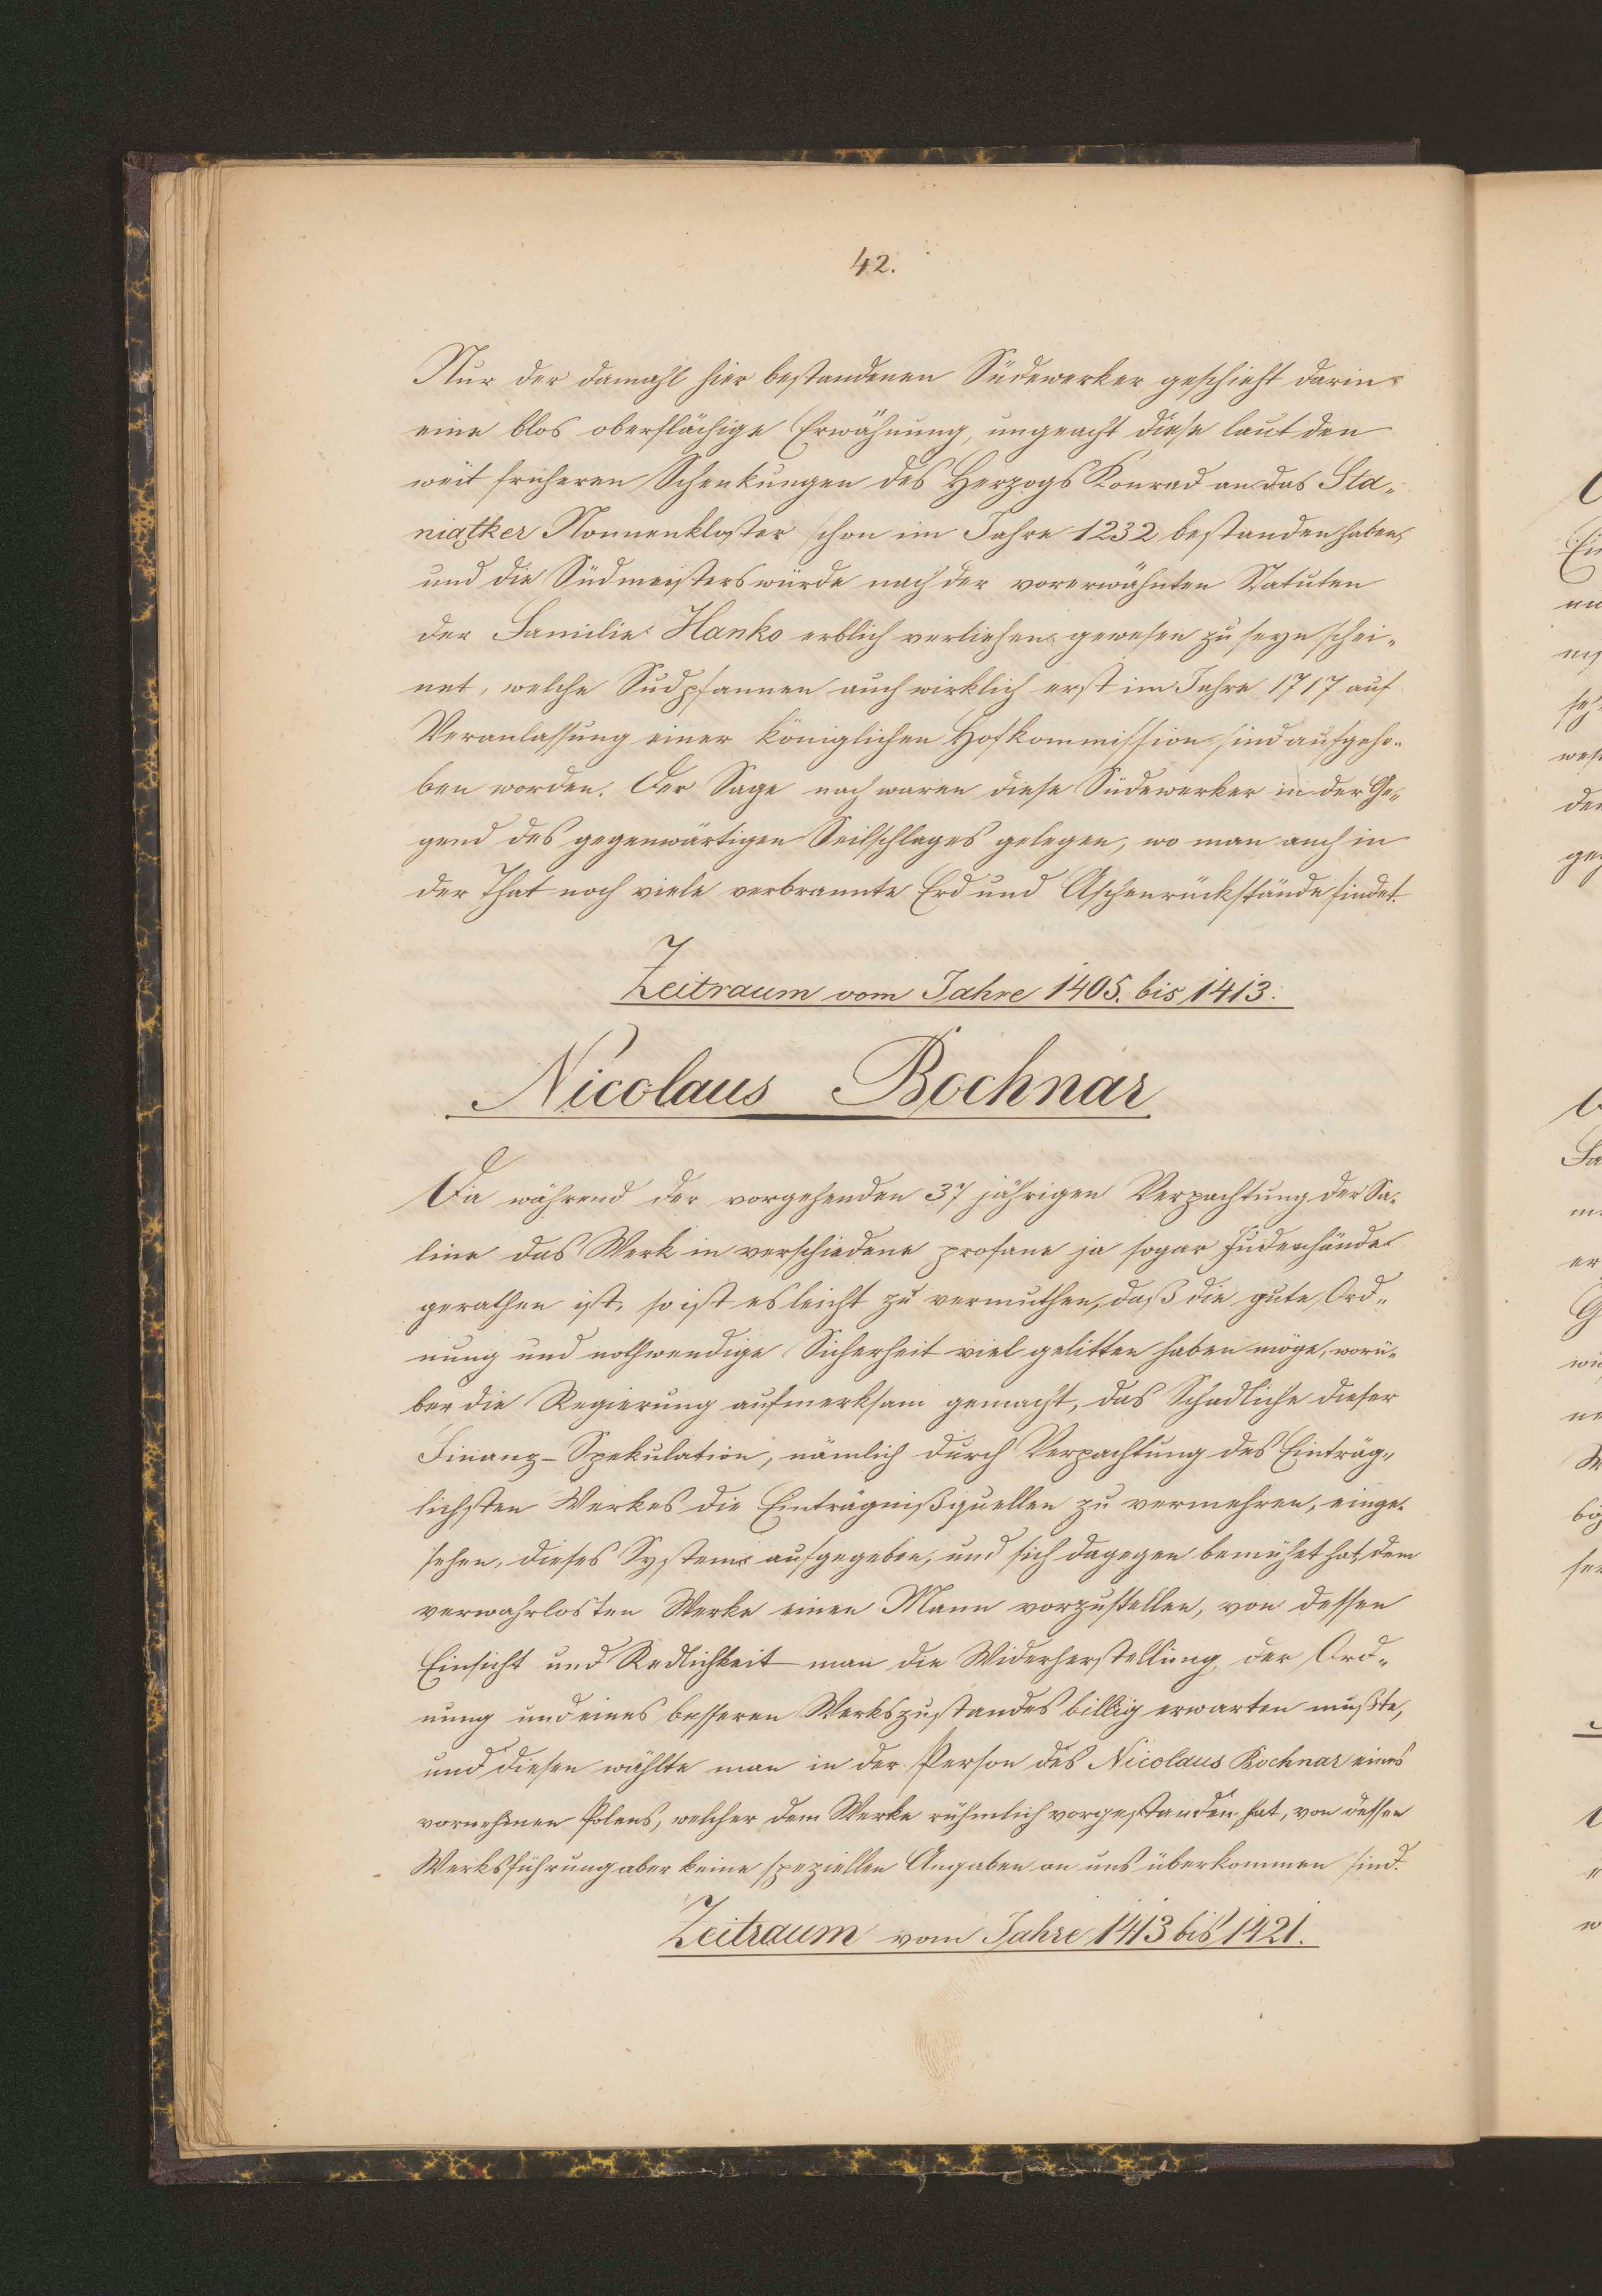 42.
Nur der damahl hier bestandenen Südewerker geschieht darin
eine blos oberflächige Erwähnung, ungeacht diese laut den
weit früheren Schenkungen des Herzogs Konrad an das Sta-
niątker Nonnenkloster schon im Jahre 1232 bestanden haben,
und die Südmeisterswürde nach der vorerwähnten Statuten
der Familie Hanko erblich verliehen gewesen zu seyn schei-
net, welche Sudpfannen auch wirklich erst im Jahre 1717 auf
Veranlassung einer königlichen Hofkommission sind aufgeho-
ben worden. Der Sage nach waren diese Südewerker in der Ge-
gend des gegenwärtigen Seilschlages gelegen, wo man auch in
der That noch viele verbrannte Erd und Aschenrückstände findet.
Zeitraum vom Jahre 1405. bis 1413.
Nicolaus Bochnar
Da während der vorgehenden 37 jährigen Verpachtung der Sa-
line das Werk in verschiedene profane ja sogar Judenhände
gerathen ist, so ist es leicht zu vermuthen, daß die gute Ord-
nung und nothwendige Sicherheit viel gelitten haben möge, worü-
ber die Regierung aufmerksam gemacht, das Schadliche dieser
Finanz-Spekulation, nämlich durch Verpachtung des Einträg-
lichsten Werkes die Einträgnißquellen zu vermehren, einge-
sehen, dieses System aufgegeben, und sich dagegen bemühet hat, dem
verwahrlosten Werke einen Mann vorzustellen, von dessen
Einsicht und Redlichkeit man die Widerherstellung der Ord-
nung und eines besseren Werkszustandes billig erwarten mußte,
und diesen wählte man in der Person des Nicolaus Bochnar eines
vornehmen Polens, welcher dem Werke rühmlich vorgestanden hat, von dessen
Werksführung aber keine speziellen Angaben an uns überkommen sind.
Zeitraum vom Jahre 1413 bis 1421.